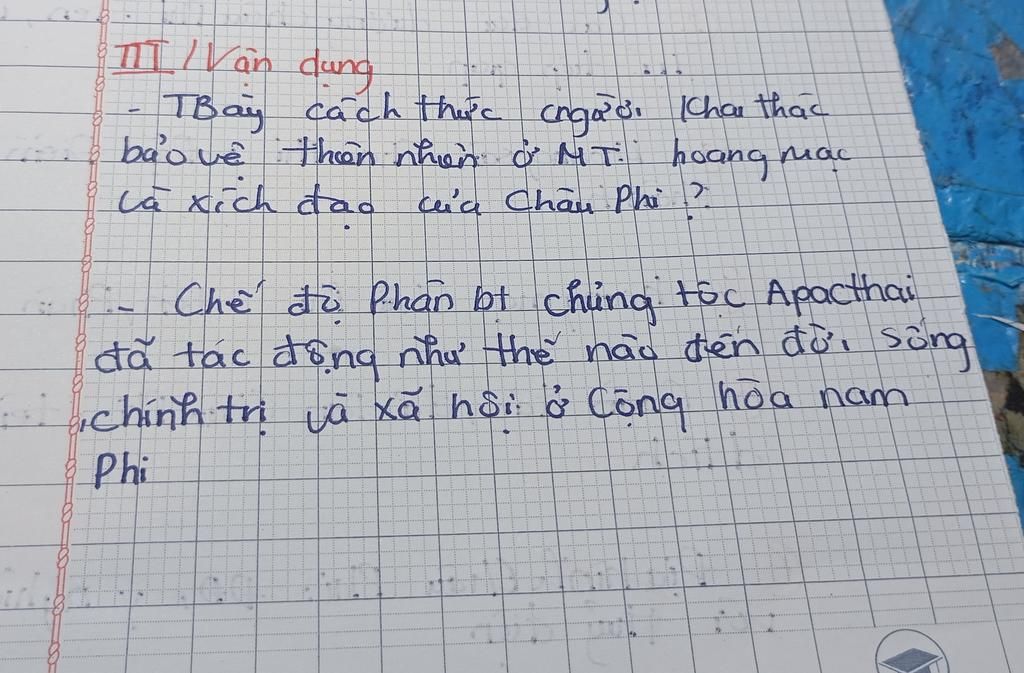 III / Vận dụng
- TBày cách thức cngười khai thác
bảo vệ thiên nhiên ở MT: hoang mạc
và xích đạo của Châu Phi ?
- Chế độ Phân bt chủng tộc Apacthai
đã tác động như thế nào đến đời sống
chính trị và xã hội ở Cộng hòa nam
Phi